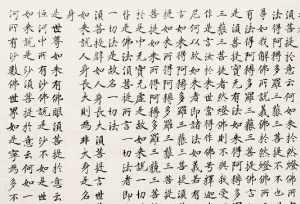 法得阿耨多羅三藐三菩提不
尊如我解佛所說義佛於然燈佛所
法得阿耨多羅三藐三菩提佛
是須菩提實無有法如來得阿耨多羅
三藐三菩提須菩提
三藐三菩提
作是言汝於來世當得作佛號釋迦
尼何以故如來者即諸法如義
言如來得阿耨多羅三藐三菩提
如來得阿耨多羅三藐三菩提
菩提如來所得阿耨多羅三藐三菩提
是中無實無虛是故如來說
須菩提所言一切法者即
一切法是故名一切法
須菩提譬如人身長大須菩提言世
如來說人身長大則為非大身是名
身
是世尊如來有佛眼須菩提於意云
恒河中所有沙佛說是沙不如是世
如來說是沙須菩提於意云何如一
河所有沙數佛世界如是寧為多不